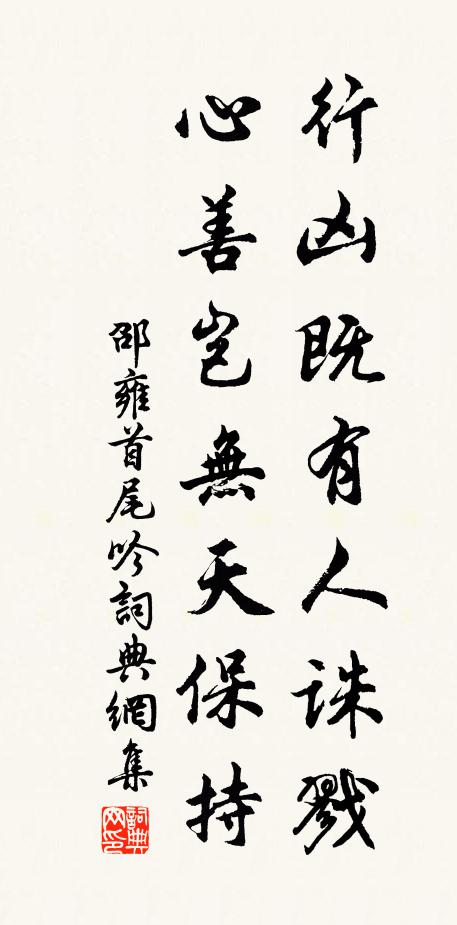 行凶既有人誅戮
心善豈無天保持
邵雍首尾吟詞典網集
詞典网印